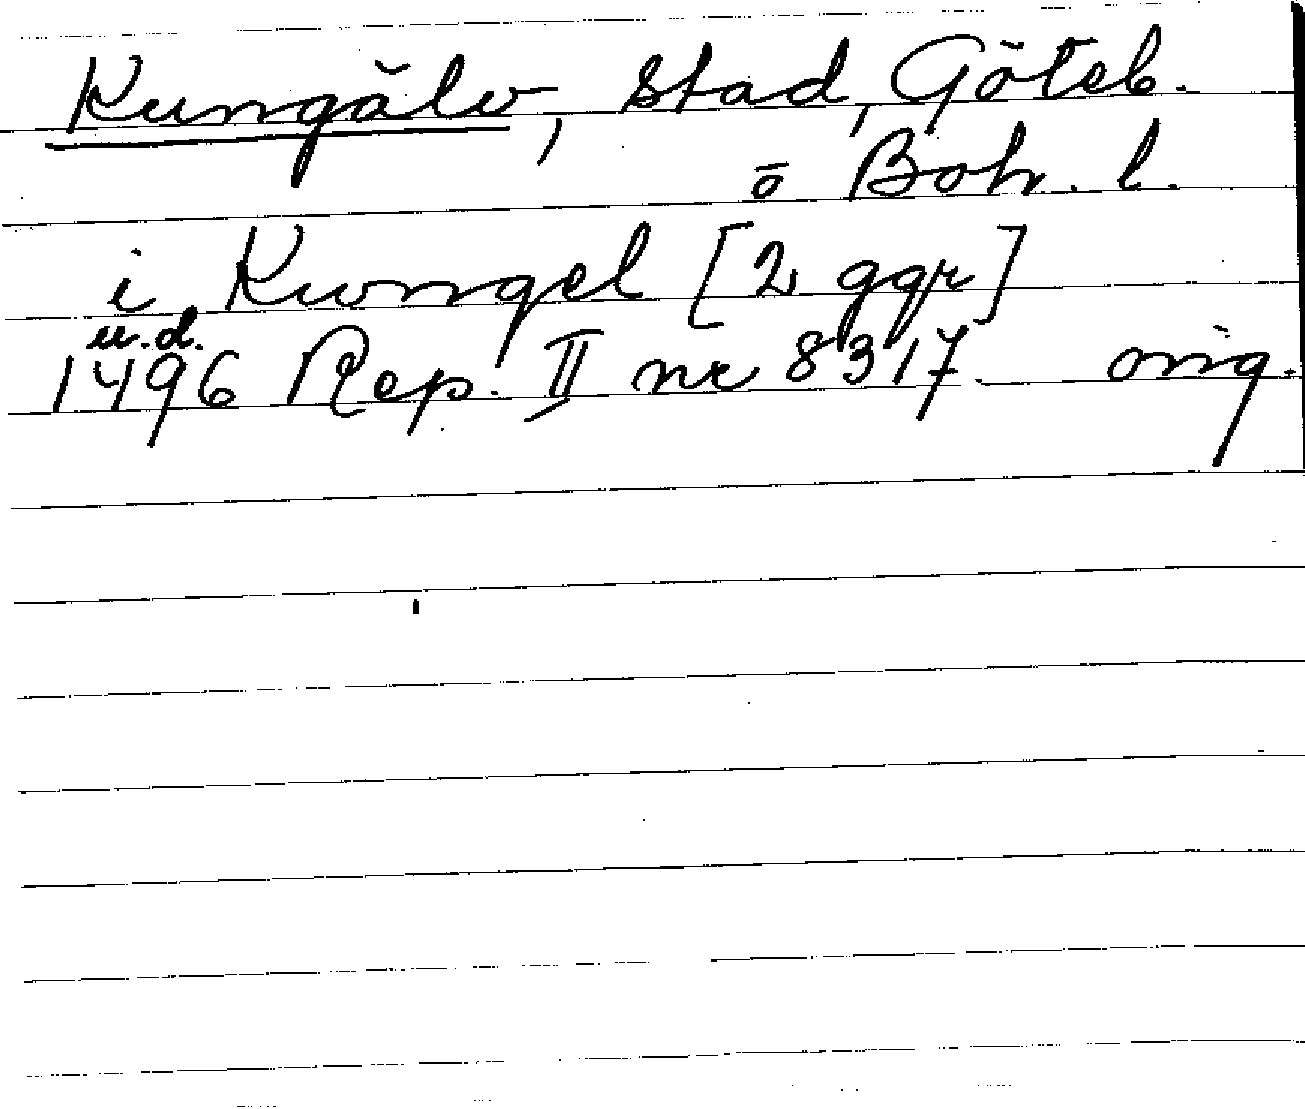 Kungälv, stad, Göteb.
o Boh. l.
i Kungel [2 ggr]
u.d.
1496 Rep. II nr 8317 orig.